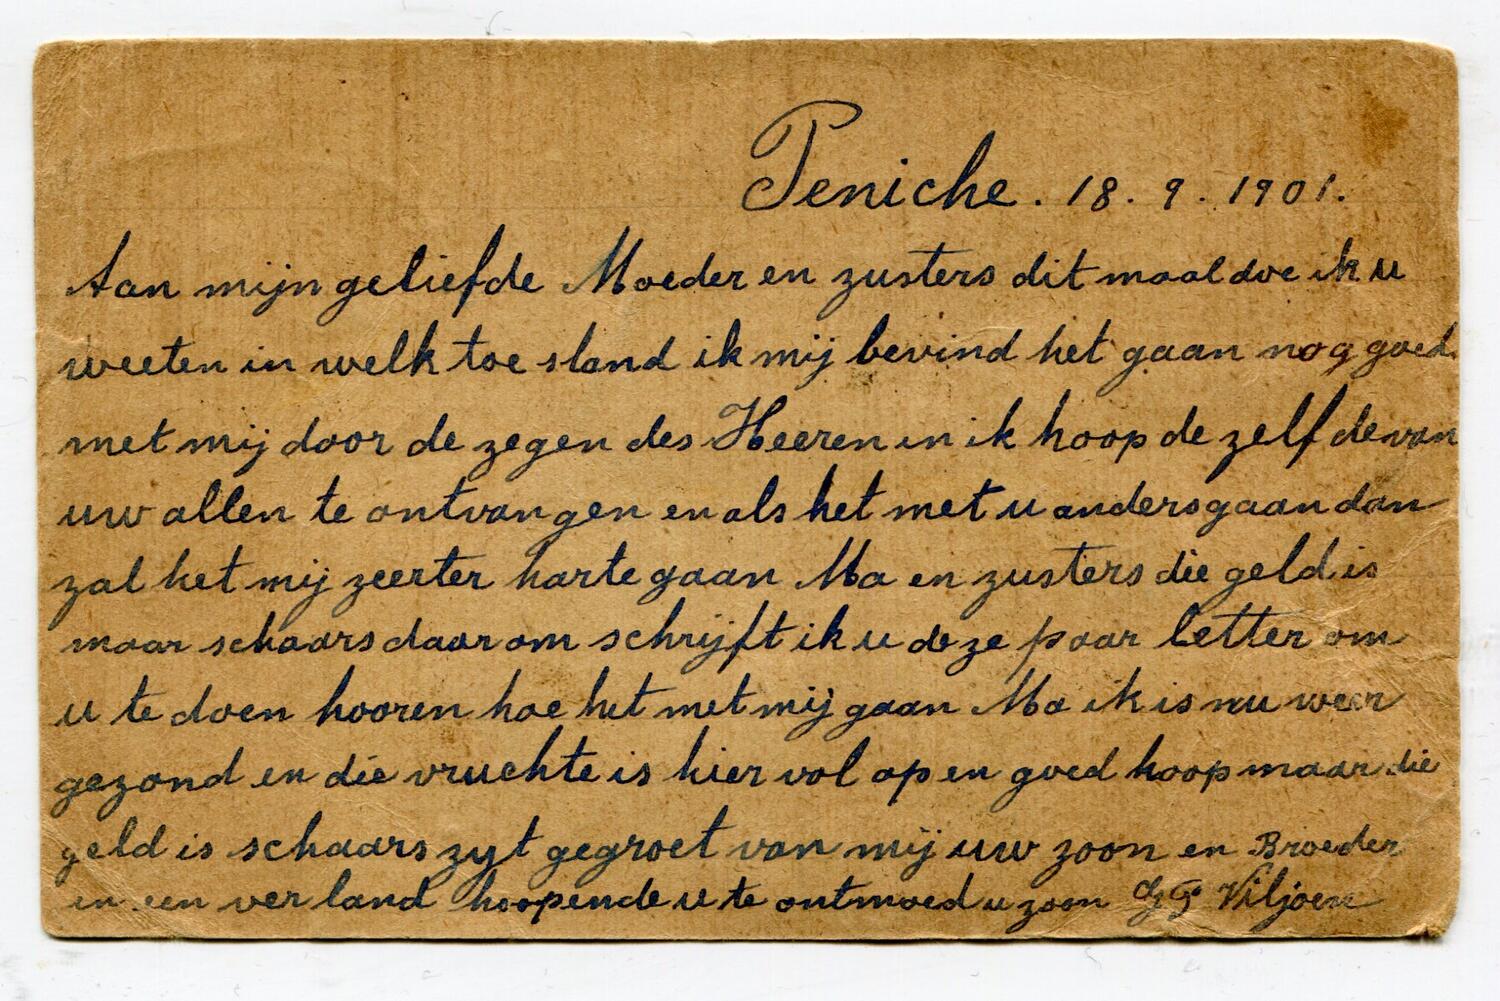 Peniche. 18. 9. 1901.
Aan mijn geliefde Moeder en zusters dit maal doe ik u
weeten in welk toe stand ik mij bevind het gaan nog goed
met mij door de zegen des Heeren en ik hoop de zelf de van
uw allen te ontvangen en als het met u anders gaan dan
zal het mij zeer ter harte gaan Ma en zusters die geld is
maar schaars daar om schrijft ik u deze paar letter om
u te doen hooren hoe het met mij gaan Ma ik is nu weer
gezond en die vruchte is hier vol op en goed koop maar die
geld is schaars zyt gegroet van mij uw zoon en Broeder
in een ver land hoopende u te ontmoed u zoon Viljoen